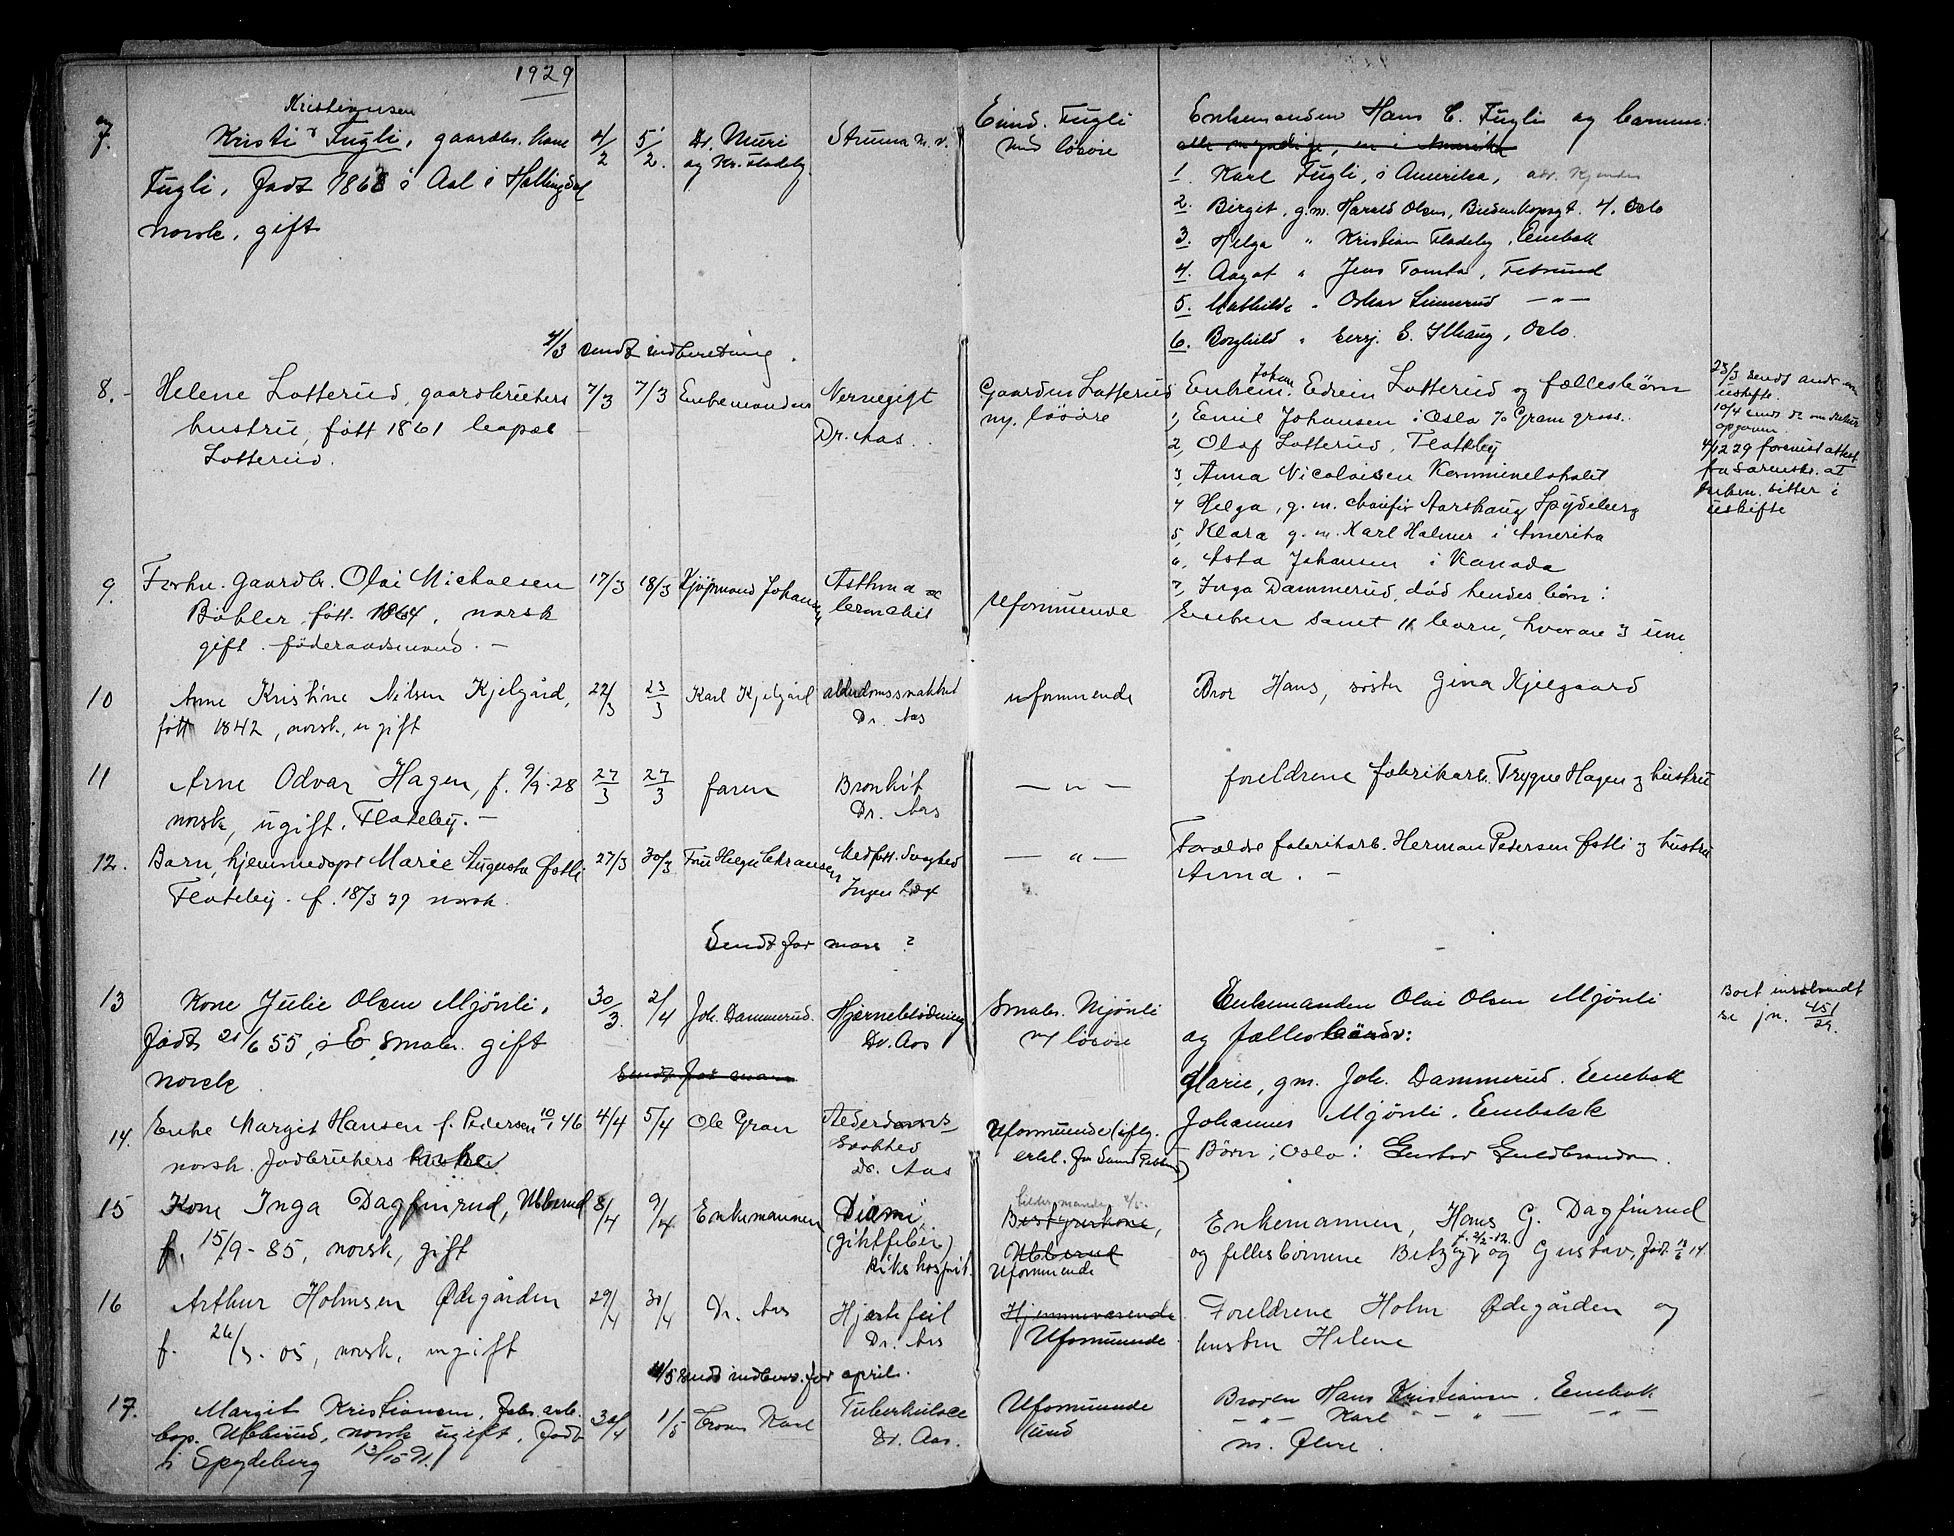 1929
Kristiansen
7. Kristi Fugli, gaardbr. kone 4/2 5/2 Dr. Muri Struma m. v. Eiend. Fugli Enkemanden Hans C. Fugli og barn:
Fugli, født 1863 i Aal i Hallingdal og Kr. Fladeby med løsøre alle myndige, en i Amerika
norsk, gift
1. Karl Fugli, i Amerika, adr. kjendes
2. Birgit, g.m. Harald Olsen, 4. Oslo
3. Helga " Kristian Fladeby, Enebak
4. Aagot " Jens Tomta, Fetsund
5. Mathilde " Oskar Linnerud — " —
6. Borghild " E. Ilhaug, Oslo.
4/3 sendt indberetning.
8. - Helene Lotterud, gaardbruters 7/3 7/3 Enkemanden Nervegift Gaarden Lotterud Enkem. Johan Edvin Lotterud og fællesbørn
hustru, født 1861 bopæl Dr. Aas. m. løsøre
Lotterud.
1, Emil Johansen i Oslo
2, Olaf Lotterud, Flateby
3, Anna Nicolaisen Kommunelokalet
4 Helga, g. m. Aarshaug Spydeberg
5, Klara g. m. Karl Holmer i Amerika
6, Asta Johansen i Kanada
7, Inga Dammerud, død hendes børn:
23/3 sendt
uskifte.
10/4
opgaven
4/12 29 forevist attest
fra Sorensk. at
enkem. sitter i
uskifte
9. Forhv. gaardbr. Olai Michaelsen 17/3 18/3 Kjøpmand Johansen Asthma & Uformuende Enken samt 11 barn, hvorav 3 um
Bøhler født 1864, norsk bronchit
gift. føderaadsmand. -
10 Anne Kristine Nilsen Kjelgård, 22/3 23/3 Karl Kjelgård alderdomssvakhet uformuende Bror Hans, søster Gina Kjelgaard
født 1842, norsk, ugift Dr. Aas
11 Arne Odvar Hagen, f. 9/9-28 27/3 27/3 faren Bronkit — " — foreldrene fabrikarb. Trygve Hagen og hustru
norsk, ugift, Flateby. - Dr. Aas
12. Barn, hjemmedøpt Marie Augusta Østli 27/3 30/3 Fru Helga Medfødt Svaghed — " — Forældre fabrikarb. Herman Pedersen Østli og hustru
Flateby. f. 18/3 29 norsk. Ingen Læge Anna. -
Sendt for mars ?
13 Kone Julie Olsen Mjönli, 30/3. 2/4 Joh. Dammerud. Hjærneblødning Smabr. Mjönli Enkemanden Olai Olsen Mjönli
født 21/6 55, i E. smabr. gift Dr. Aas m/ løsøre og fællesbarn:
norsk
Sendt for mars
Marie, gm. Joh. Dammerud. Enebak
Johannes Mjönli. Enebakk
Børn i Oslo: Gustav Guldbrandsen.
Boet innsendt
se jn. 451/29.
14. Enke Margit Hansen f. Pedersen 10/1 46 4/4 5/4 Ole Gran Alderdoms Uformuende (iflg.
norsk. Jordbrukers enke svakhed erkl. fra
Dr. Aas
15 Kone Inga Dagfinrud, Ubberud 8/4 9/4 Enkemannen (giktfeber) Bestyrerkone, Enkemannen, Hans G. Dagfinrud
f. 15/9-85, norsk, gift Rikshospit. Ubberud og fellesbørnene Betzy f. 2/2-12. og Gustav, født 12/6 14
Uformuende
16 Arthur Holmsen Ødegården 29/4 30/4 Dr. Aas Hjertefeil Hjemmeværende Foreldrene Holm Ødegården og
f. 26/3-05, norsk, ugift Dr. Aas Uformuende hustru Helene
4/5 sendt indber. for april.
17. Margit Kristiansen, fabr. arb. 30/4 1/5 Broren Karl Tuberkulose Uformuende Broren Hans Kristiansen, Enebak
bop. Ubberud, norsk ugift, født Dr. Aas. — " — Karl — " — — " —
i Spydeberg